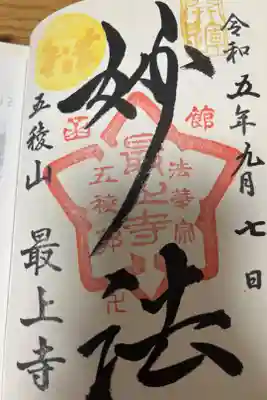 令和五年九月七日
奉拝
妙法
函館
法華宗
最上寺
五稜郭
卍
五稜山 最上寺